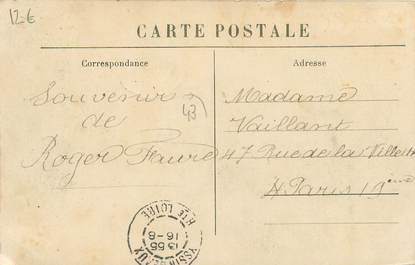 12 €
CARTE POSTALE
Correspondance
Adresse
Souvenir
de
Roger Faure
43
Madame
Vaillant
47 Rue de la Villette
à Paris 19ème
YSSINGEAUX
13 55
16-8
HTE LOIRE